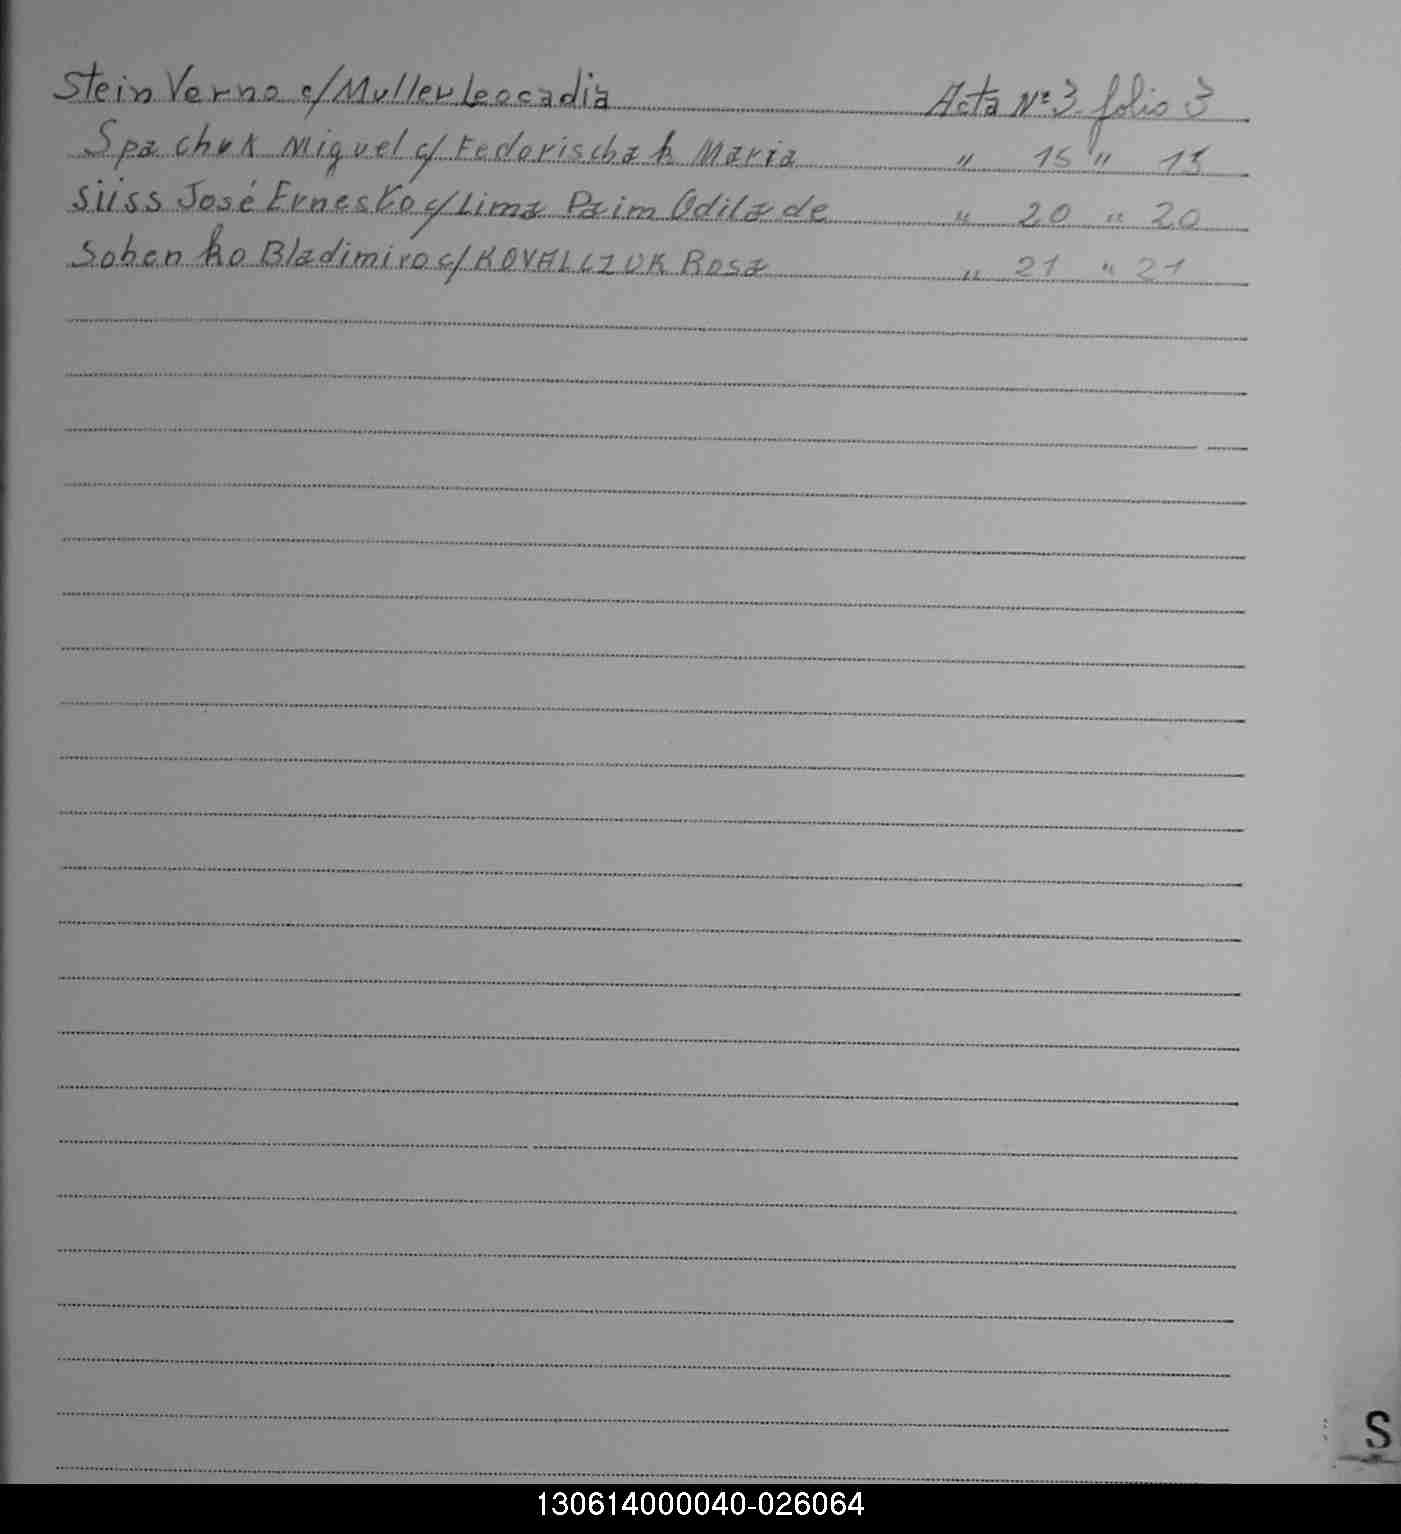 Stein Verno c/Muller Leocadia Acta Nº 3 folio 3
Spachuk Miguel c/Fedorischak Maria " 15 " 15
Süss José Ernesto c/Lima Paim Odila de " 20 " 20
Sobenko Bladimiro c/KOVALCZUK Rosa " 21 " 21
S
130614000040-026064